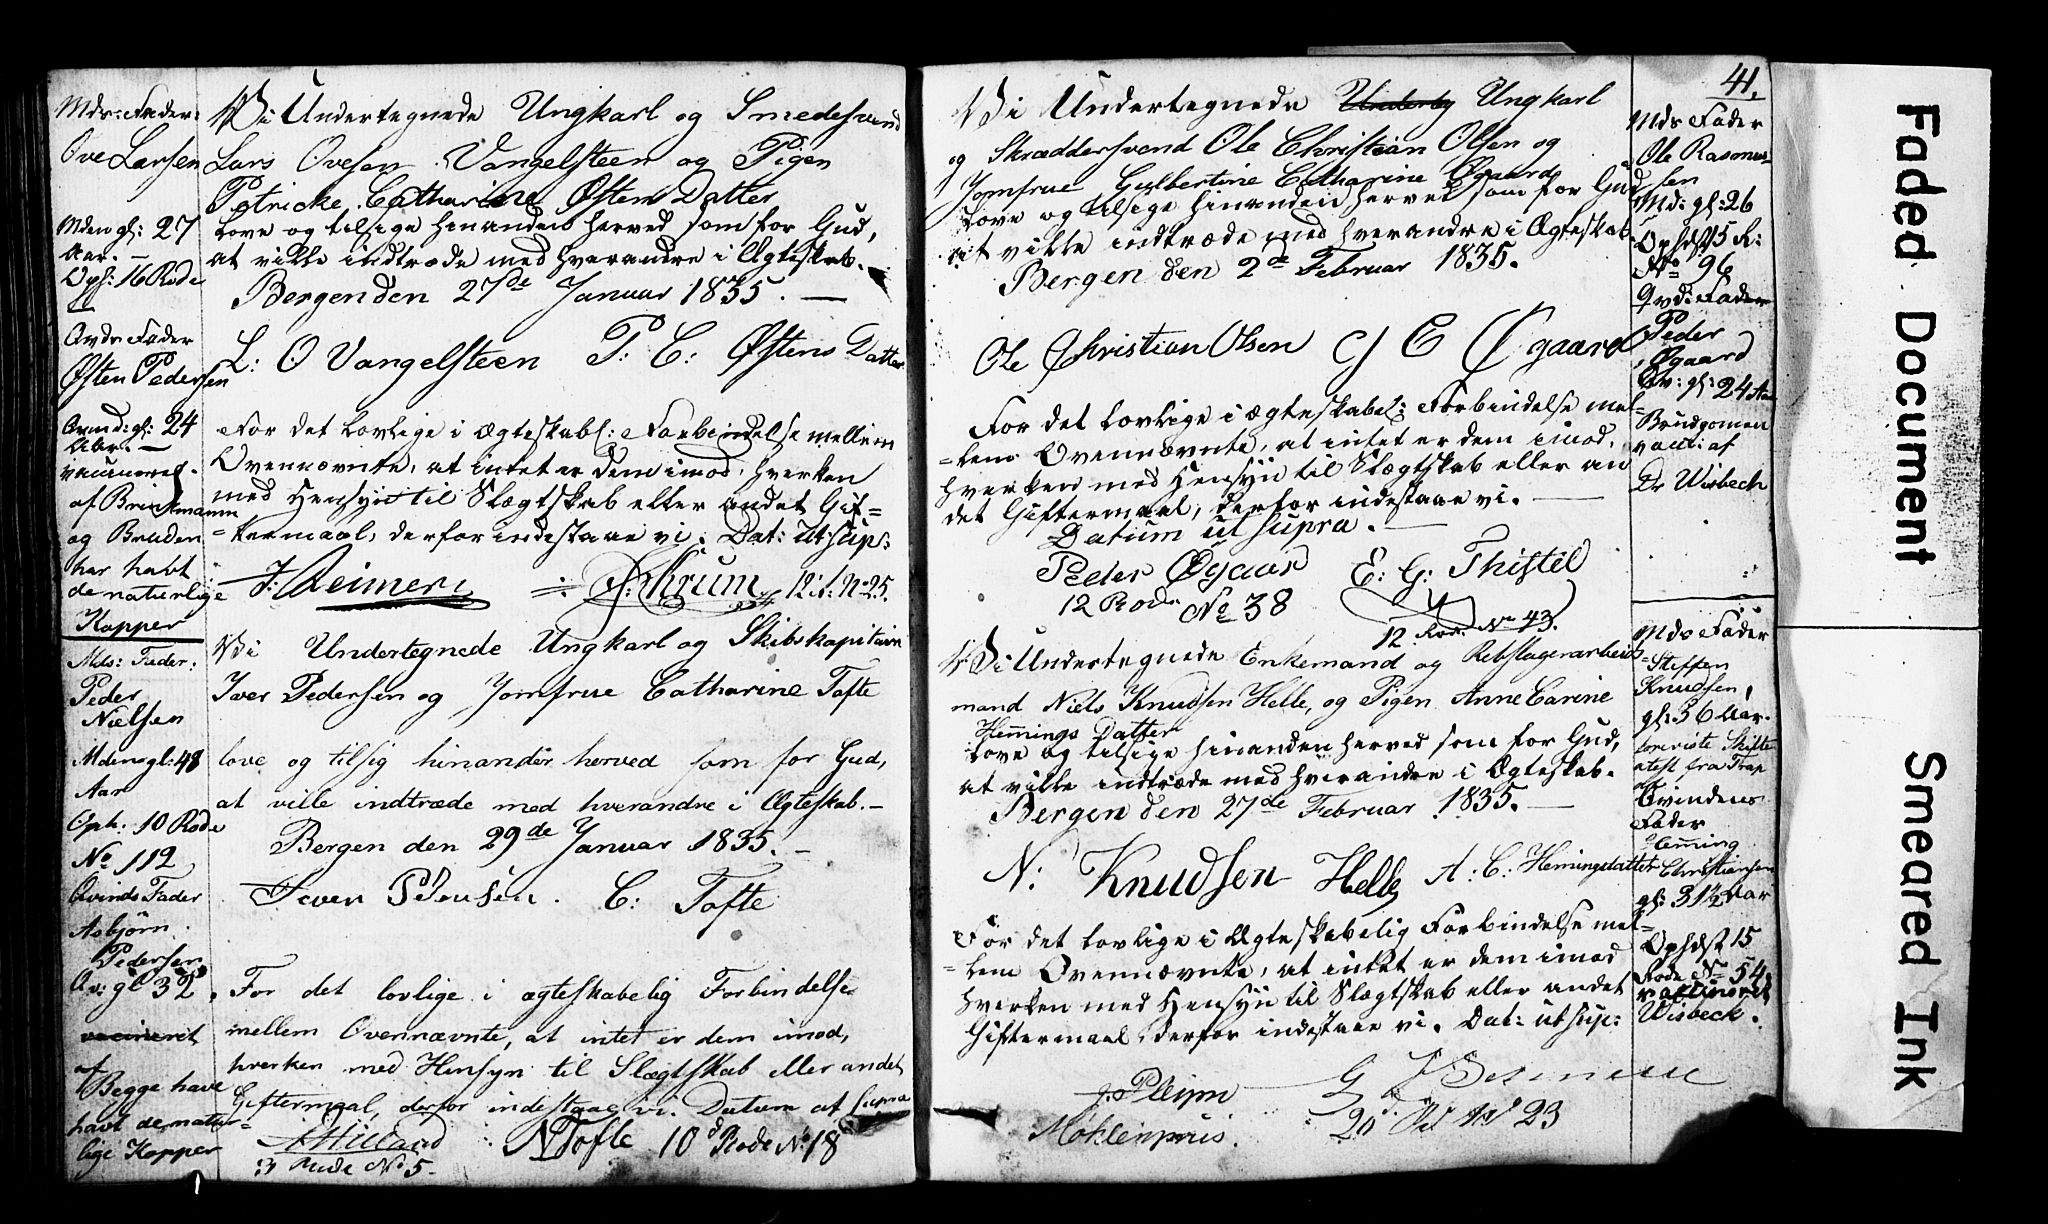 Mds: Fader:
Ove Larsen
Mden gl: 27
Aar. —
Oph: 16 Rode
Qvds Fader
Østen Pedersen
Qvind: gl: 24
Aar. —
vaccineret.
af Brunkmann
og Bruden
har havt
de naturlige
Kopper
Vi Undertegnede Ungkarl og Smedesvend
Lars Ovesen Vangelsteen og Pigen
Petricke Catharine Østens Datter
Love og tilsige hinanden herved som for Gud,
at ville indtræde med hverandre i Ægteskab.
Bergen den 27de Januar 1835. —
L: O Vangelsteen P: C: Østens Datter
For det lovlige i ægteskabl: Forbindelse mellem
Ovennævnte, at intet er dem imod, hverken
med Hensyn til Slægtskab eller andet Gif=
=termaal, derfor indestaae vi. Dat: ut sup:
J: Reimers 12 R. No 25.
Mds: Fader:
Peder
Nielsen
Mden gl: 48
Aar
Oph: 10 Rode
No 112
Qvinds Fader
Asbjörn
Pedersen
Qv: gl 32.
vacineret
af
Begge have
havt de natur=
lige Kopper
Vi Undertegnede Ungkarl og Skibskapitain
Iver Pedersen og Jomfrue Catharine Tofte
love og tilsig hinander herved som for Gud,
at ville indtræde med hverandre i Ægteskab. —
Bergen den 29de Januar 1835. —
Iver Pedersen. C: Tofte
For det lovlige i ægteskabelig Forbindelse
mellem Ovennævnte, at intet er dem imod,
hverken med Hensyn til Slægtskab eller andet
Giftermaal, derfor indestaae vi. Datum ut supra
N Tofte 10d Rode No 18
3 Rode No 5.
41.
Vi Undertegnede Underteg Ungkarl
og Skræddersvend Ole Christian Olsen og
Jomfrue Gulbertine Catharine Øgaard
Love og tilsige hinanden herved som for Gud
at ville indtræde med hverandre i Ægteskab.
Bergen den 2de Februar 1835.
Ole Christian Olsen G C Øgaard
For det lovlige i ægteskabel: Forbindelse mel=
=lem Ovennævnte, at intet er dem imod,
hverken med Hensyn til Slægtskab eller an
det Giftermaal, derfor indestaae vi. —
Datum ut supra. —
Peder Øgaard E: G: Thistel
12 Rode No 38
12 Rode No 43.
Mds Fader
Ole Rasmus=
sen
Md: gl: 26
Oph: 15 R:
No 96
Qvd: Fader
Peder
Øgaard
Qv: gl: 24 Aar
Brudgomen
vacc: af
Dr Wisbech
Vi Undertegnede Enkemand og Rebslagerarbeids
mand Niels Knudsen Helle, og Pigen Anne Carine
Hemings Datter
Love og tilsige hinanden herved som for Gud,
at ville indtræde med hverandre i Ægteskab.
Bergen den 27de Februar 1835. —
N: Knudsen Helle A: C: Hemingsdatter
For det lovlige i Ægteskabelig Forbindelse mel=
=lem Ovennævnte, at intet er dem imod
hverken med Hensyn til Slægtskab eller andet
Giftermaal, derfor indestaae vi. Dat: ut sup:
Möhlenpriis. 20 Rd No 23
Mds Fader
Steffen
Knudsen,
gl: 36 Aar.
foreviste Skifte
atest fra
Qvindens
Fader
Heming
Christiansen
gl: 31½ Aar
Ophdst 15
Rode No 54.
vaccineret
Wisbeck.
Faded Document
Smeared Ink